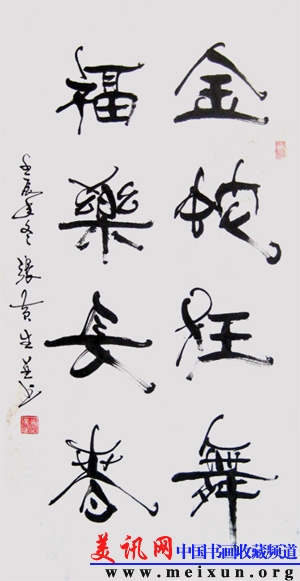 金蛇狂舞
福樂長春
壬辰年冬張 生
美讯网 中国书画收藏频道
www.meixun.org